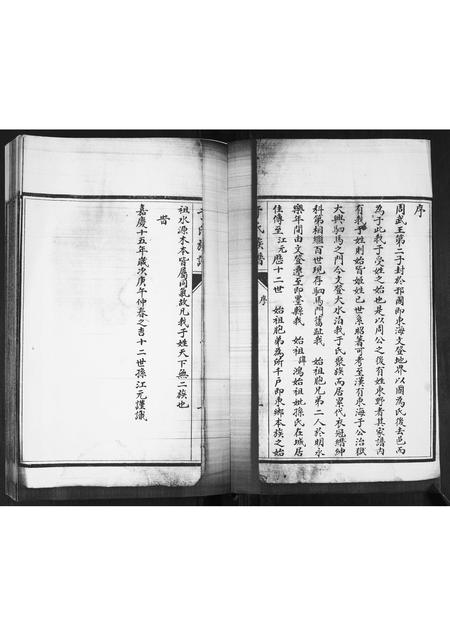 序
周武王第二子封於邘國即東海文登地界以國為氏後去邑而
為于此我于受姓之始也是以周公之後有姓東野者其家譜內
有我于姓則始皆姬姓已世系昭著可考至漢有東海于公治獄
大興駟馬之門今文登大水泊我于氏聚族而居累代衣冠縉紳
科第相繼百世現存駟馬門舊趾我 始祖胞兄弟二人於明永
樂年間由文登遷至即墨縣我 始祖諱鴻始祖妣孫氏在城居
住傳至江元歷十二世 始祖胞弟為所千戶即東鄉本族之始
于氏族譜 序
祖水源木本皆屬同氣故凡我于姓天下無二族也
旹
嘉慶十五年歲次庚午仲春之吉十二世孫江元謹識